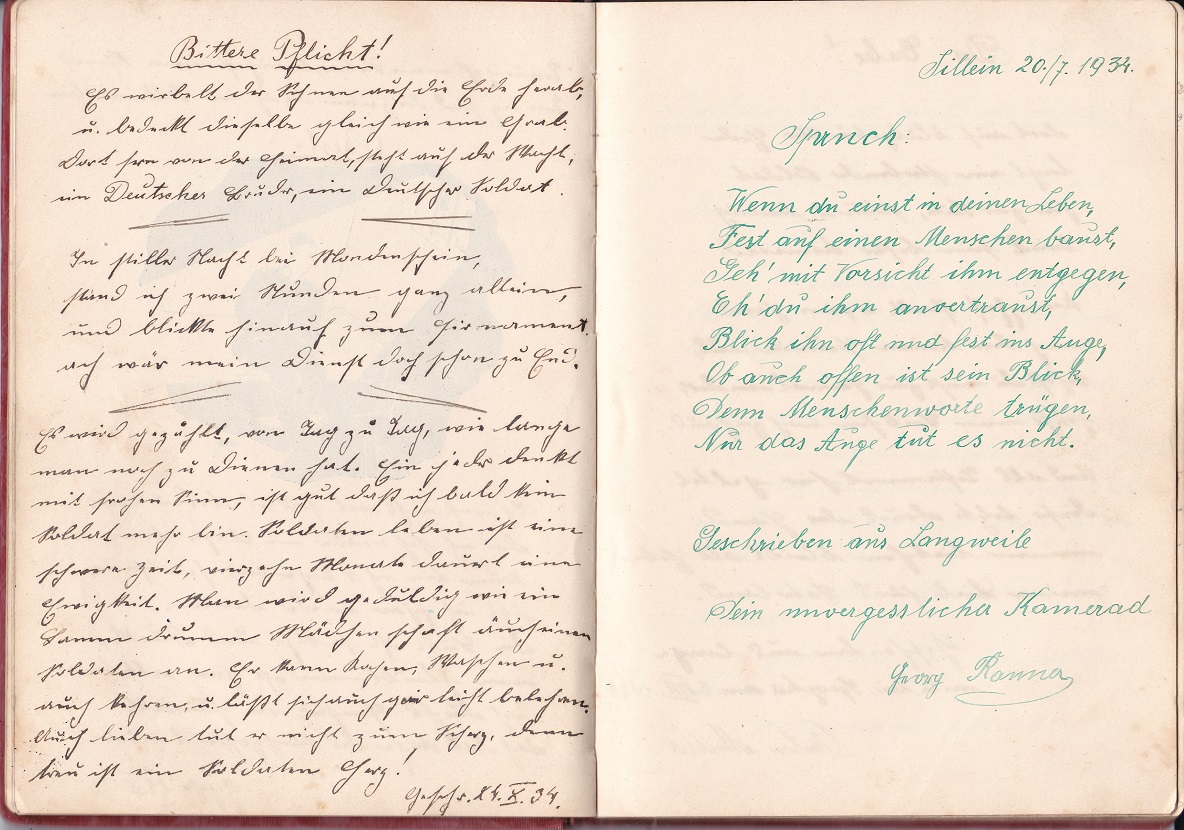 Bittere Pflicht!
Es wirbelt der Schnee auf die Erde herab,
u. bedeckt dieselbe gleich wie ein Grab.
Dort fern von der Heimat, steht auf der Wacht,
ein Deutscher Bruder, ein Deutscher Soldat.
In stiller Nacht bei Mondenschein,
stand ich zwei Stunden ganz allein,
und blickte hinauf zum Firnament.
ach wär mein Dienst doch schon zu End.
Es wird gezählt, von Tag zu Tag, wie lange
man noch zu Dienen hat. Ein jeder denkt
mit frohen Sinn, ist gut daß ich bald kein
Soldat mehr bin. Soldaten leben ist eine
schwere Zeit, vierzehn Monate dauert eine
Ewigkeit. Man wird geduldig wie ein
Lamm drumm Mädchen schaft äuch einen
Soldaten an. Er kann Kochen, Waschen u.
auch kehren, u. läßt sich auch gar leicht belehren.
Auch lieben tut er nicht zum Scherz, denn
treu ist ein Soldaten Herz!
Geschr. 24. X. 34.
Sillein 20./7. 1934.
Spruch:
Wenn du einst in deinen Leben,
Fest auf einen Menschen baust,
Geh' mit Vorsicht ihm entgegen,
Eh' du ihm anvertraust,
Blick ihn oft und fest ins Auge,
Ob auch offen ist sein Blick,
Denn Menschenworte trügen,
Nur das Auge tut es nicht.
Geschrieben aus Langweile
Dein unvergesslicher Kamerad
Georg